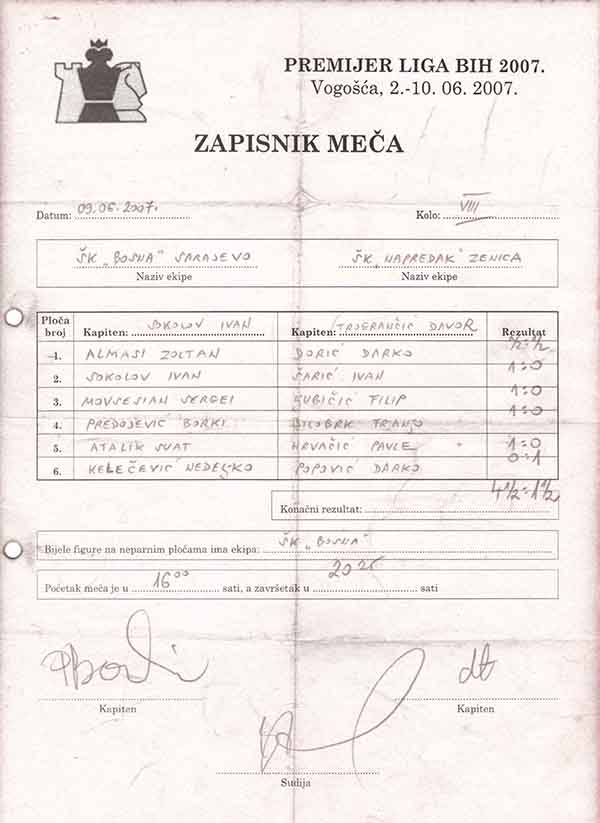 PREMIJER LIGA BIH 2007.
Vogošća, 2.-10. 06. 2007.
ZAPISNIK MEČA
Datum: 09.06.2007. Kolo: VIII
ŠK „BOSNA“ SARAJEVO ŠK „NAPREDAK“ ZENICA
Naziv ekipe Naziv ekipe
Ploča broj Kapiten: SOKOLOV IVAN Kapiten: DAVOR Rezultat
1. ALMASI ZOLTAN DORIĆ DARKO ½:½
2. SOKOLOV IVAN ŠARIĆ IVAN 1:0
3. MOVSESIAN SERGEI FILIP 1:0
4. PREDOJEVIĆ BORKI 1:0
5. ATALIK SUAT HRVAČIĆ PAVLE 1:0
6. KELEČEVIĆ NEDELJKO POPOVIĆ DARKO 0:1
Konačni rezultat: 4½:1½
Bijele figure na neparnim pločama ima ekipa: ŠK „BOSNA“
Početak meča je u 16 00 sati, a završetak u 20 25 sati
Kapiten Kapiten
Sudija